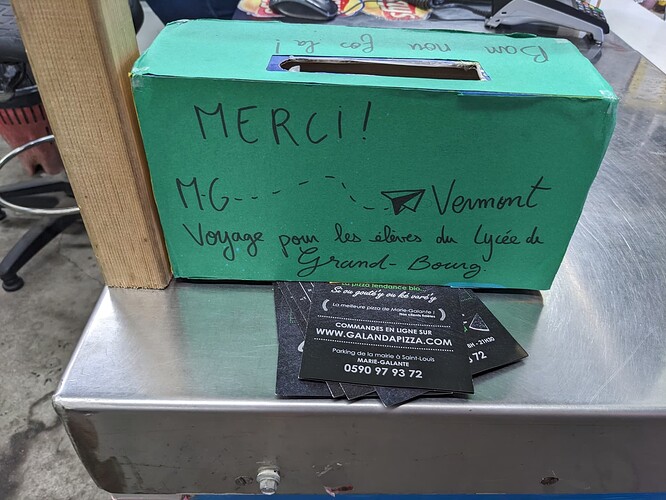 Ban nou fos la !
MERCI!
M-G Vermont
Voyage pour les élèves du Lycée de
Grand-Bourg.
La pizza tendance bio...
Si ou gouté'y ou ké varé'y
( La meilleure pizza de Marie-Galante ! )
Nos clients fidèles
COMMANDES EN LIGNE SUR
WWW.GALANDAPIZZA.COM
Parking de la mairie à Saint-Louis
MARIE-GALANTE
0590 97 93 72
- 21H30
72